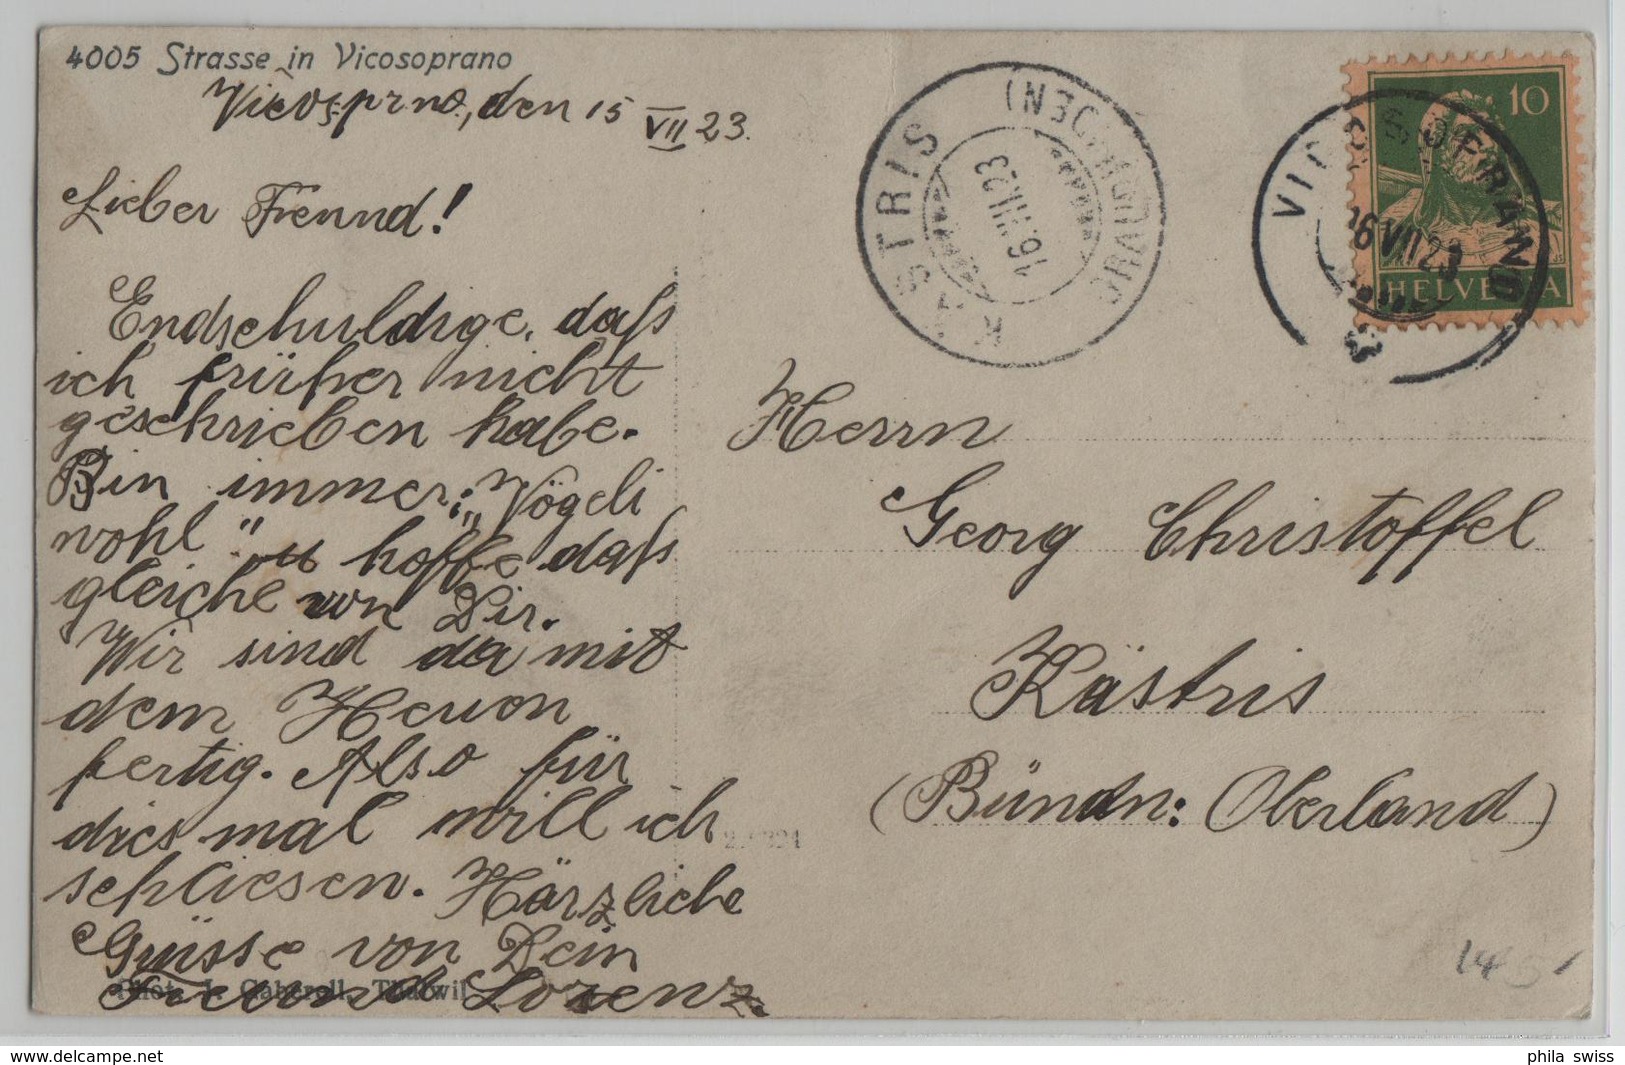 4005 Strasse in Vicosoprano
Vicosoprno, den 15 VII 23.
Lieber Freund!
Endschuldige, daß
ich früher nicht
geschrieben habe.
Bin immer: „Vögeli
wohl" u hoffe daß
gleiche von Dir.
Wir sind da mit
dem Heuen
fertig. Also für
dies mal will ich
schliesen. Härzliche
Grüsse von Dein
Freund Lorenz.
Phot. J. Gaberell, Thalwil
KÄSTRIS
(GRAUBÜNDEN)
16.VII.23
10
HELVETIA
VICOSOPRANO
16 VII 23
Herrn
Georg Christoffel
Kästris
(Bündn: Oberland)
phila swiss
www.delcampe.net